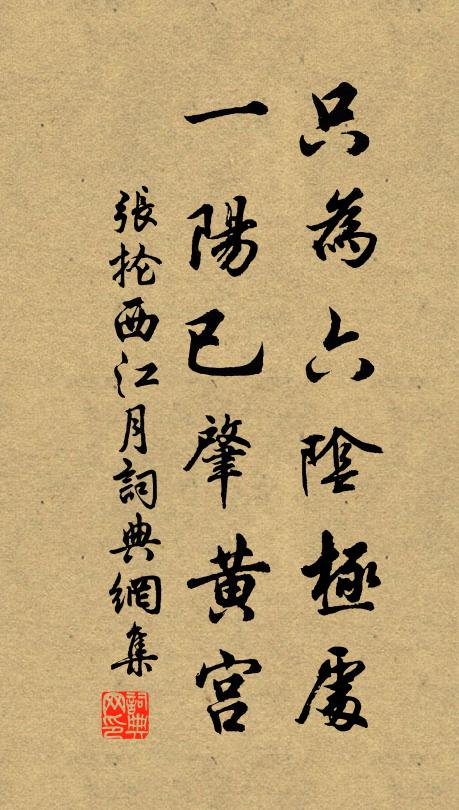 只為六陰極處
一陽已肇黃宮
張抡西江月詞典網集
詞典
网印